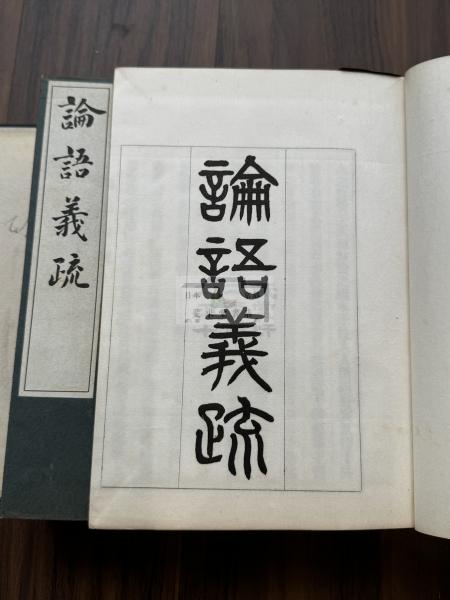 論語義疏
論語義疏